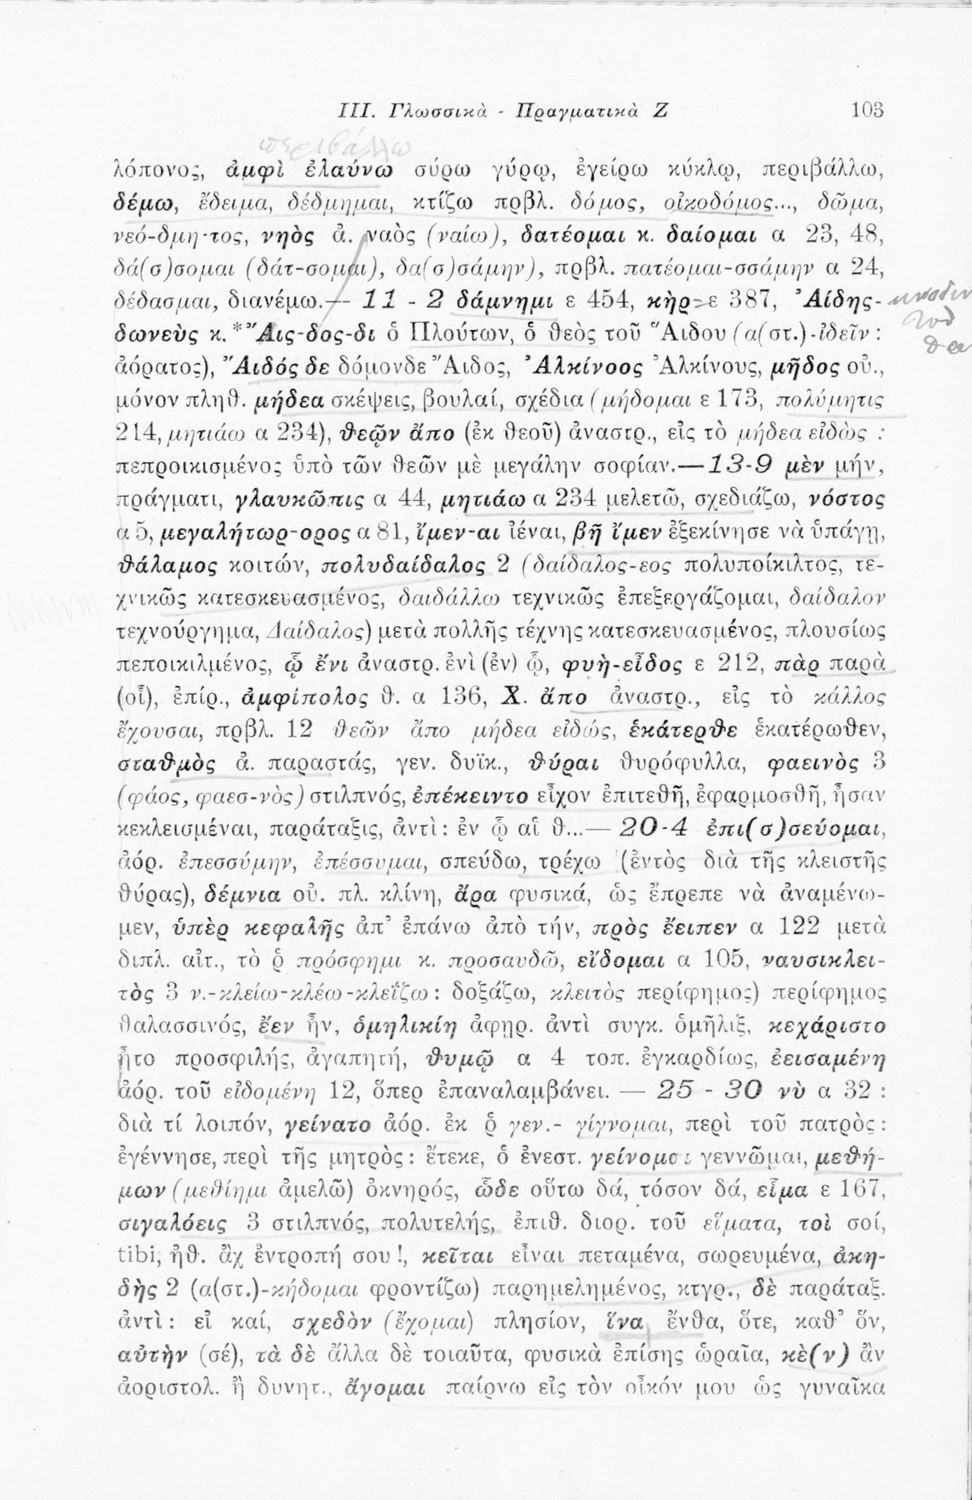 III. Γλωσσικὰ - Πραγματικὰ Ζ 103
περιβάλλω
λόπονος, ἀμφὶ ἐλαύνω σύρω γύρῳ, ἐγείρω κύκλῳ, περιβάλλω,
δέμω, ἔδειμα, δέδμημαι, κτίζω πρβλ. δόμος, οἰκοδόμος..., δῶμα,
νεό-δμη-τος, νηὸς ἀ. ναὸς (ναίω), δατέομαι κ. δαίομαι α 23, 48,
δά(σ)σομαι (δάτ-σομαι), δα(σ)σάμην), πρβλ. πατέομαι-σσάμην α 24,
δέδασμαι, διανέμω.— 11 - 2 δάμνημι ε 454, κὴρ ε 387, Ἀίδης-
δωνεὺς κ. *Ἄις-δος-δι ὁ Πλούτων, ὁ θεὸς τοῦ Ἅιδου (α(στ.)-ἰδεῖν :
ἀόρατος), Ἄιδός δε δόμονδε Ἄιδος, Ἀλκίνοος Ἀλκίνους, μῆδος οὐ.,
μόνον πληθ. μήδεα σκέψεις, βουλαί, σχέδια (μήδομαι ε 173, πολύμητις
214, μητιάω α 234), θεῶν ἄπο (ἐκ θεοῦ) ἀναστρ., εἰς τὸ μήδεα εἰδὼς :
πεπροικισμένος ὑπὸ τῶν θεῶν μὲ μεγάλην σοφίαν.—13-9 μὲν μήν,
πράγματι, γλαυκῶπις α 44, μητιάω α 234 μελετῶ, σχεδιάζω, νόστος
α 5, μεγαλήτωρ-ορος α 81, ἴμεν-αι ἰέναι, βῆ ἴμεν ἐξεκίνησε νὰ ὑπάγῃ,
θάλαμος κοιτών, πολυδαίδαλος 2 (δαίδαλος-εος πολυποίκιλτος, τε-
χνικῶς κατεσκευασμένος, δαιδάλλω τεχνικῶς ἐπεξεργάζομαι, δαίδαλον
τεχνούργημα, Δαίδαλος) μετὰ πολλῆς τέχνης κατεσκευασμένος, πλουσίως
πεποικιλμένος, ᾧ ἔνι ἀναστρ. ἐνὶ (ἐν) ᾧ, φυὴ-εἶδος ε 212, πὰρ παρὰ
(οἷ), ἐπίρ., ἀμφίπολος θ. α 136, Χ. ἄπο ἀναστρ., εἰς τὸ κάλλος
ἔχουσαι, πρβλ. 12 θεῶν ἄπο μήδεα εἰδώς, ἑκάτερθε ἑκατέρωθεν,
σταθμὸς ἀ. παραστάς, γεν. δυϊκ., θύραι θυρόφυλλα, φαεινὸς 3
(φάος, φαεσ-νὸς) στιλπνός, ἐπέκειντο εἶχον ἐπιτεθῆ, ἐφαρμοσθῆ, ἦσαν
κεκλεισμέναι, παράταξις, ἀντὶ: ἐν ᾧ αἱ θ...— 20-4 ἐπι(σ)σεύομαι,
ἀόρ. ἐπεσσύμην, ἐπέσσυμαι, σπεύδω, τρέχω (ἐντὸς διὰ τῆς κλειστῆς
θύρας), δέμνια οὐ. πλ. κλίνη, ἄρα φυσικά, ὡς ἔπρεπε νὰ ἀναμένω-
μεν, ὑπὲρ κεφαλῆς ἀπ᾽ ἐπάνω ἀπὸ τήν, πρὸς ἔειπεν α 122 μετὰ
διπλ. αἰτ., τὸ ῥ πρόσφημι κ. προσαυδῶ, εἴδομαι α 105, ναυσικλει-
τὸς 3 ν.-κλείω-κλέω-κλεΐζω : δοξάζω, κλειτὸς περίφημος) περίφημος
θαλασσινός, ἔεν ἦν, ὁμηλικίη ἀφῃρ. ἀντὶ συγκ. ὁμῆλιξ, κεχάριστο
ἦτο προσφιλής, ἀγαπητή, θυμῷ α 4 τοπ. ἐγκαρδίως, ἐεισαμένη
ἀόρ. τοῦ εἰδομένη 12, ὅπερ ἐπαναλαμβάνει. — 25 - 30 νὺ α 32 :
διὰ τί λοιπόν, γείνατο ἀόρ. ἐκ ῥ γεν.- γίγνομαι, περὶ τοῦ πατρὸς :
ἐγέννησε, περὶ τῆς μητρὸς : ἔτεκε, ὁ ἐνεστ. γείνομαι γεννῶμαι, μεθή-
μων (μεθίημι ἀμελῶ) ὀκνηρός, ὧδε οὕτω δά, τόσον δά, εἷμα ε 167,
σιγαλόεις 3 στιλπνός, πολυτελής, ἐπιθ. διορ. τοῦ εἵματα, τοὶ σοί,
tibi, ἠθ. ἂχ ἐντροπή σου !, κεῖται εἶναι πεταμένα, σωρευμένα, ἀκη-
δὴς 2 (α(στ.)-κήδομαι φροντίζω) παρημελημένος, κτγρ., δὲ παράταξ.
ἀντὶ : εἰ καί, σχεδὸν (ἔχομαι) πλησίον, ἵνα ἔνθα, ὅτε, καθ᾽ ὅν,
αὐτὴν (σέ), τὰ δὲ ἄλλα δὲ τοιαῦτα, φυσικὰ ἐπίσης ὡραῖα, κὲ(ν) ἂν
ἀοριστολ. ἢ δυνητ., ἄγομαι παίρνω εἰς τὸν οἶκόν μου ὡς γυναῖκα